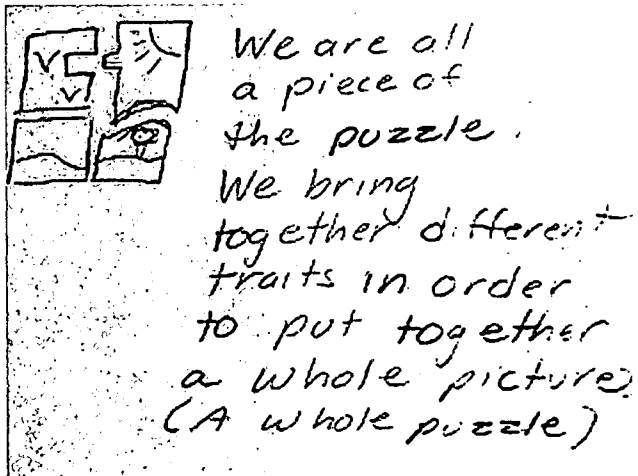 We are all
a piece of
the puzzle.
We bring
together different
traits in order
to put together
a whole picture.
(A whole puzzle)